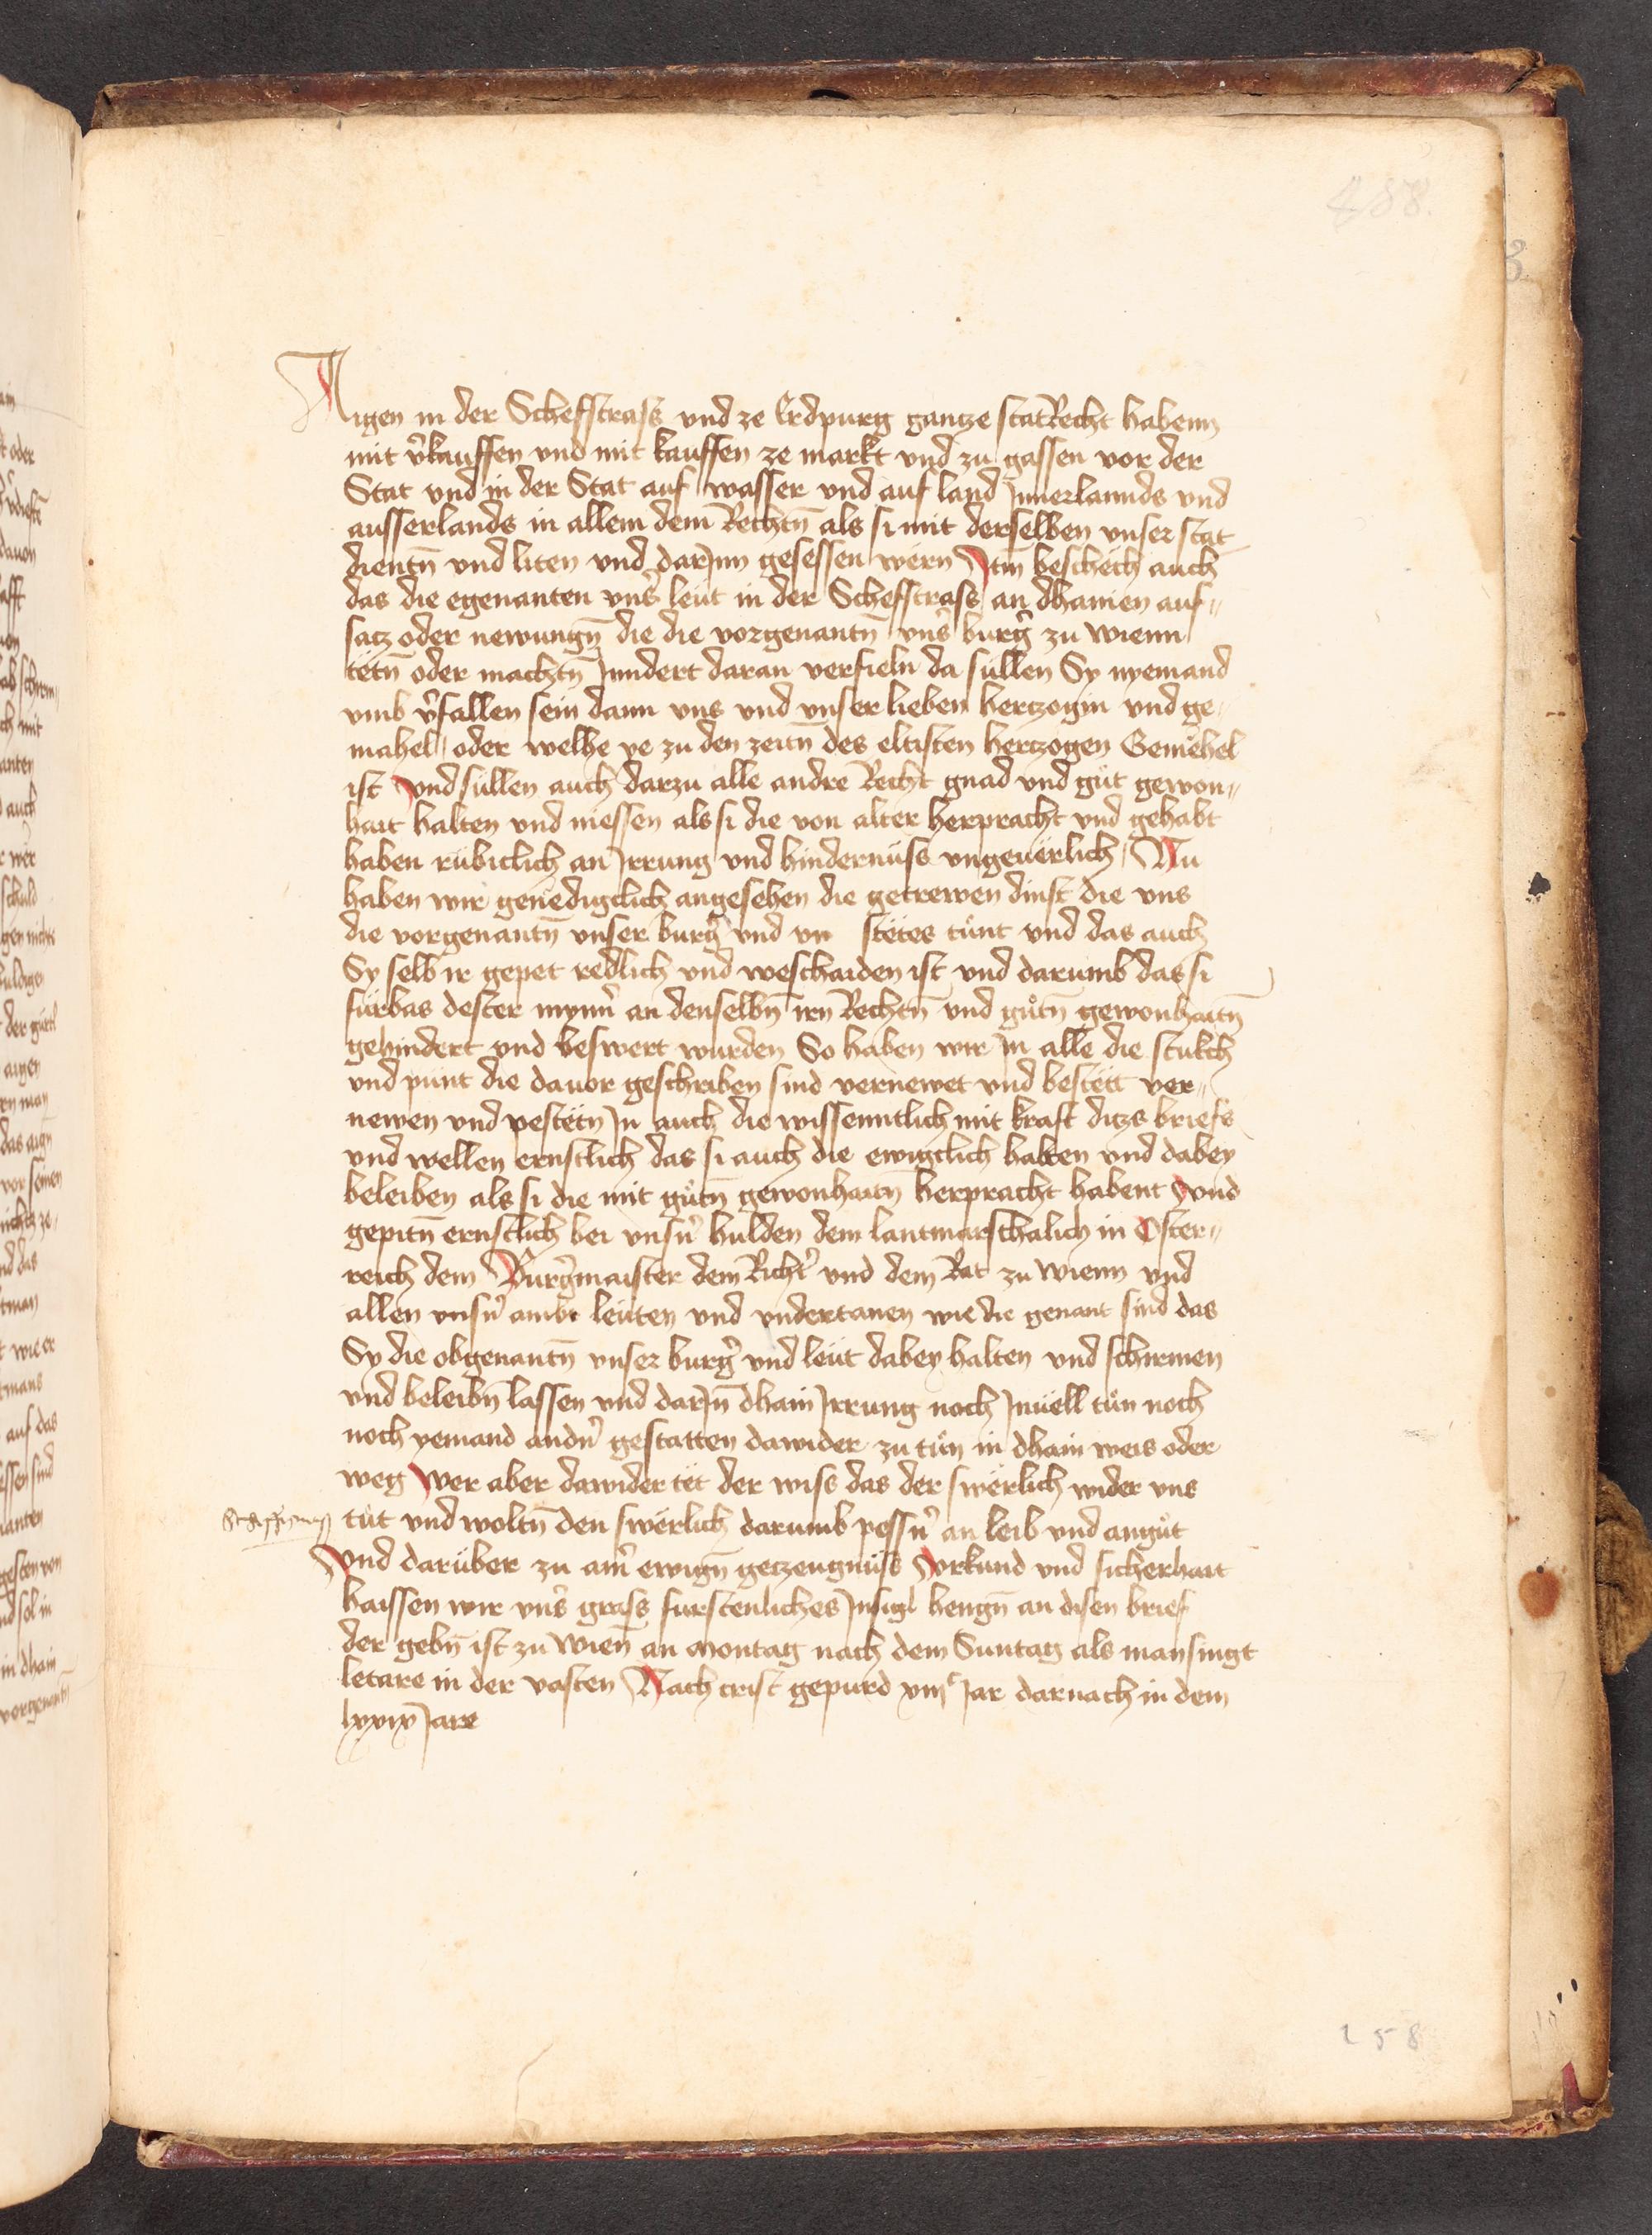 458.
Aigen in der Scheffstrass vnd ze Erdpurg gantze statRecht habenn
mit v̾kauffen vnd mit kauffen ze markt vnd zu gassen vor der
Stat vnd in der Stat auf wasser vnd auf land Innerlannds vnd
ausserlands in allem dem Rechtn̄ als si mit derselben vnser stat
dientn̄ vnd liten vnd darInn gesessen wërn Itm̄ beschëch auch
das die egenanten vns̾ leut in der Scheffstrass an dhainen auf„
satz oder newungn̄ die die vorgenantn̄ vns̾ burg̾ zu wienn
tëtn̄ oder machtn̄ Inndert daran verfieln da sullen Sy nyemand
vmb v̾fallen sein dann vns vnd vnser lieben hertzogin vnd ge„
mahel oder welhe ye zu den zeitn̄ des eltisten hertzogen Gemëhel
ist vnd sullen auch darzu alle andre Recht gnad vnd gůt gewon„
hait halten vnd niessen als si die von alter herpracht vnd gehabt
haben rübiclich an Irrung vnd hindernüss vngeuërlich Nu
haben wir genëdigclich angesehen die getrewen dinst die vns
die vorgenantn̄ vnser burg̾ vnd vn stëtes tůnt vnd das auch
Sy selb ir gepet redlich vnd weschaiden ist vnd darumb das si
fürbas dester mynn̾ an denselbn̄ irn Rechtn̄ vnd gůtn̄ gewonhaitn̄
gehindert vnd beswert wurden So haben wir In alle die stukch
vnd punt die dauor geschriben sind vernewet vnd bestëtt ver„
newen vnd pestëtn In auch die wissenntlich mit kraft ditzs briefs
vnd wellen ernstlich das si auch die ewigclich halten vnd dabey
beleiben als si die mit gůtn̄ gewonhaitn̄ herpracht habent vnd
gepitn̄ ernstlich bei vnsn̾ hulden dem lantmarschalich in Oster„
reich dem Burg̾maister dem Richt̾ vnd dem Rat zu wienn vnd
allen vnsn̾ ambt leuten vnd vndertanen wie die genant sind das
Sy die obgenantn̄ vnser burg̾ vnd leut dabey halten vnd schirmen
vnd beleibn̄ lassen vnd darIn̄ dhain Irrung noch Inuëll tůn noch
noch yemand andn̾ gestatten dawider zu tůn in dhain weis oder
weg Wer aber dawider tët der wiss das der swërlich wider vns
tůt vnd woltn̄ den swërlich darumb pessn̾ an leib vnd angůt
Vnd darüber zu aim̾ ewign̄ getzeugnüss Vrkund vnd sicherhait
haissen wir vns̾ gross furstenliches Insigl hengn̄ an disen brief
der gebn̄ ist zu wien̄ an montag nach dem Suntag als man singt
letare in der vasten Nach crist gepurd xiijᶜ Iar darnach in dem
lxxix Iare
258